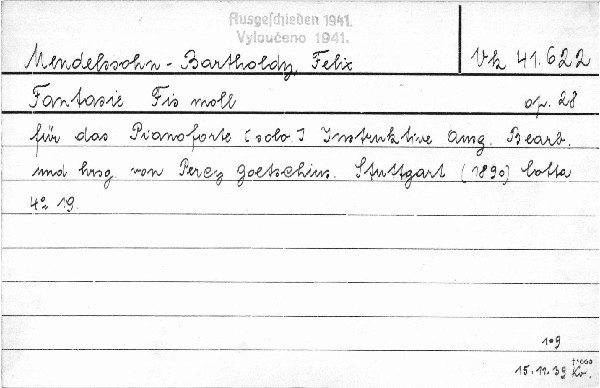 Ausgeschieden 1941.
Vyloučeno 1941.
Mendelssohn-Bartholdy, Felix Vk 41.622
Fantasie Fis moll op. 28
für das Pianoforte (solo.) Instruktive Ausg. Bearb.
und hrsg. von Percy Goetschius. Stuttgart (1890) Cotta
4º 19.
109
15.11.39 Kv.